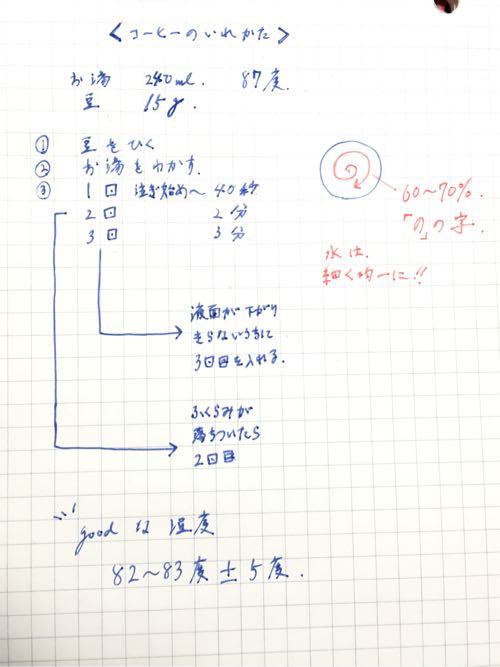 <コーヒーのいれかた>
お湯 240ml. 87度.
豆 15g.
① 豆をひく
② お湯をわかす.
③ 1回 注ぎ始め〜40秒
2回 2分
3回 3分
60〜70%.
「の」の字.
水は、
細く均一に!!
液面が下がり
きらないうちに
3回目を入れる.
ふくらみが
落ちついたら
2回目
goodな温度
82〜83度±5度.